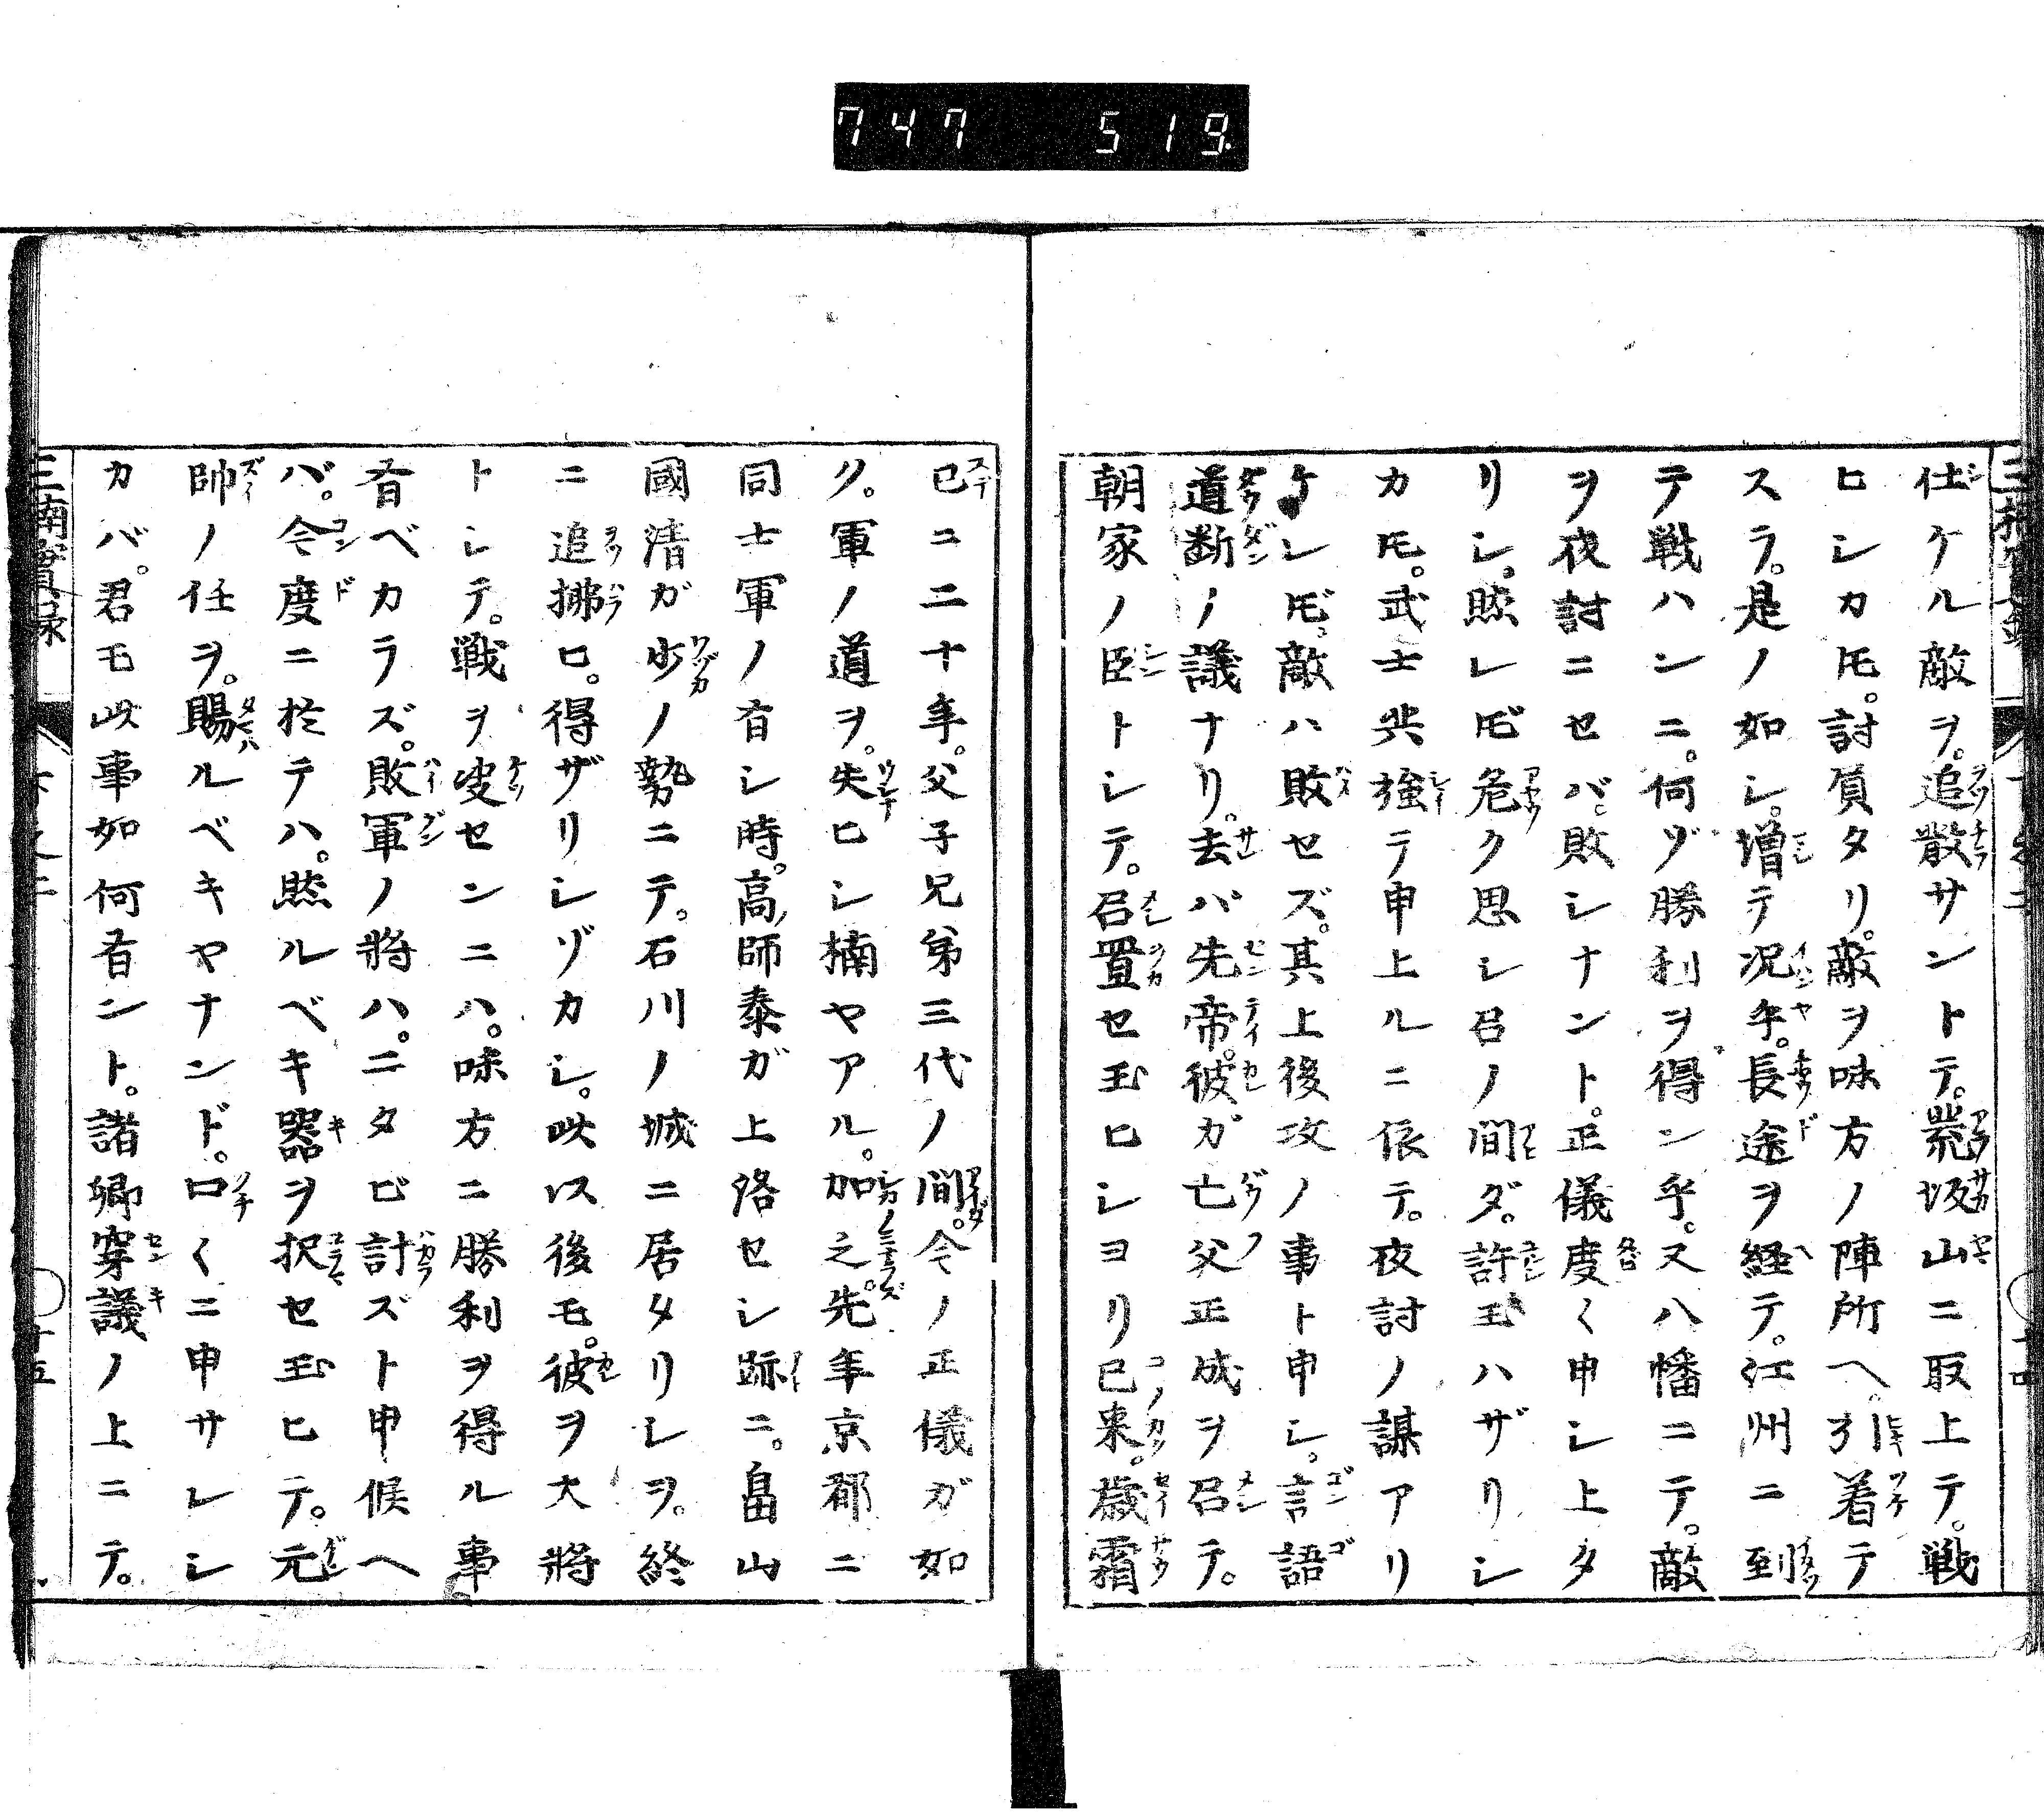 747 519
仕ケル敵ヲ。追散サントテ。荒坂山ニ取上テ。戦
ヒシカ𪜈。討負タリ。敵ヲ味方ノ陣所ヘ。引着テ
スラ。是ノ如シ。増テ況乎。長途ヲ経テ。江州ニ到
テ戦ハンニ。何ヅ勝利ヲ得ン乎。又八幡ニテ。敵
ヲ夜討ニセバ。敗シナント。正儀度〱申シ上タ
リシ。然レ𪜈危ク思シ召ノ間ダ。許玉ハザリシ
カ𪜈。武士共強テ申上ルニ依テ。夜討ノ謀アリ
ケレ𪜈。敵ハ敗セズ。其上後攻ノ事ト申シ。言語
道断ノ議ナリ。去バ先帝。彼ガ亡父正成ヲ召テ。
朝家ノ臣トシテ。召置セ玉ヒシヨリ已来。歳霜
已ニ二十年。父子兄弟三代ノ間。今ノ正儀ガ如
ク。軍ノ道ヲ。失ヒシ楠ヤアル。加之。先年京都ニ
同士軍ノ有シ時。高師泰ガ上洛セシ跡ニ。畠山
國清ガ少ノ勢ニテ。石川ノ城ニ居タリシヲ。終
ニ追拂ヒ。得ザリシゾカシ。此以後モ。彼ヲ大將
トシテ。戦ヲ决センニハ。味方ニ勝利ヲ得ル事
有ベカラズ。敗軍ノ將ハ。二タビ計ズト申候ヘ
バ。今度ニ於テハ。然ルベキ器ヲ択セ玉ヒテ。元
帥ノ任ヲ。賜ルベキヤナンド。口〱ニ申サレシ
カバ。君モ此事如何有ント。諸卿穿議ノ上ニテ。